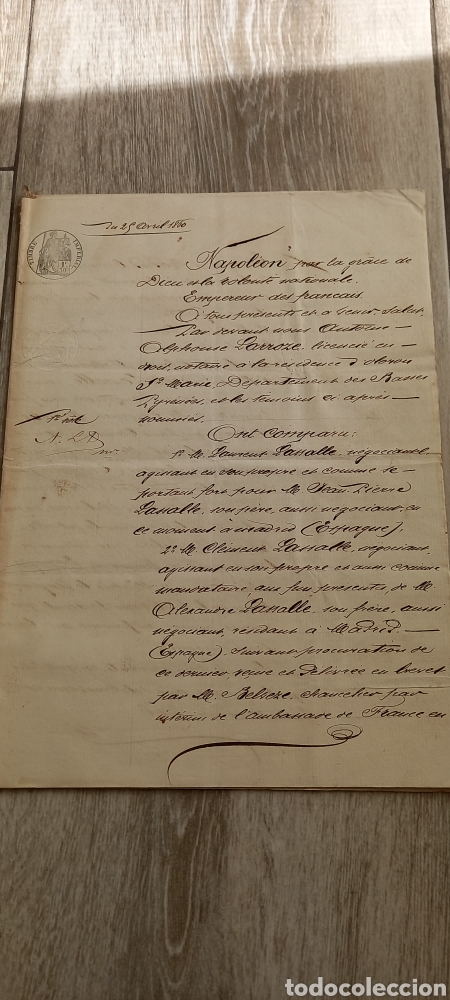 Du 25 Avril 1860
TIMBRE IMPERIAL
Napoléon par la grâce de
Dieu et la volonté nationale
Empereur des français
A tous présents et à venir Salut
Par devant nous Antoine
Alphonse Larroze, licencié en
droit, notaire à la résidence d'oloron
Ste Marie, Département des Basses
Pyrénées, et les témoins ci après
nommés.
Ont Comparu:
1o M. Laurent Lassalle, négociant,
agissant en son propre et comme se
portant fort pour M. Jean Pierre
Lassalle, son père, aussi négociant, en
ce moment à madrid (Espagne),
2o M. Clément Lassalle, négociant,
agissant en son propre et aussi comme
mandataire, aux fins présentes, de M.
Alexandre Lassalle, son frère, aussi
négociant, résidant à Madrid
(Espagne), suivant procuration de
ce dernier, reçue et délivrée en brevet
par M. chancelier par
intérim de l'ambassade de France en
todocoleccion
todocoleccion